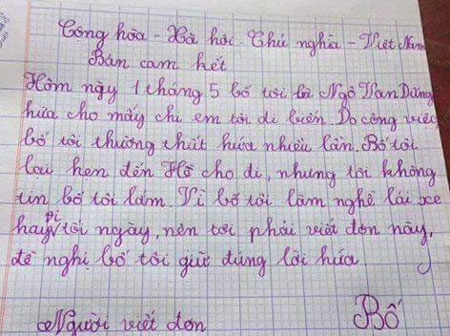 Công hòa - Xã hôi - Chủ nghĩa - Việt Nam
Bán cam hết
Hôm nậy 1 tháng 5 bố tôi là Ngô Văn Dũng
hứa cho mấy chị em tôi đi biển. Do công việc
bố tôi thường thất hứa nhiều lần. Bố tôi
lai hẹn đến Hè cho đi, nhưng tôi không
tin bố tôi lắm. Vì bố tôi làm nghề lái xe
hay đi tối ngày, nên tơi phải viết đơn này,
đề nghị bố tôi giữ đúng lời hứa.
Người viết đơn Bố